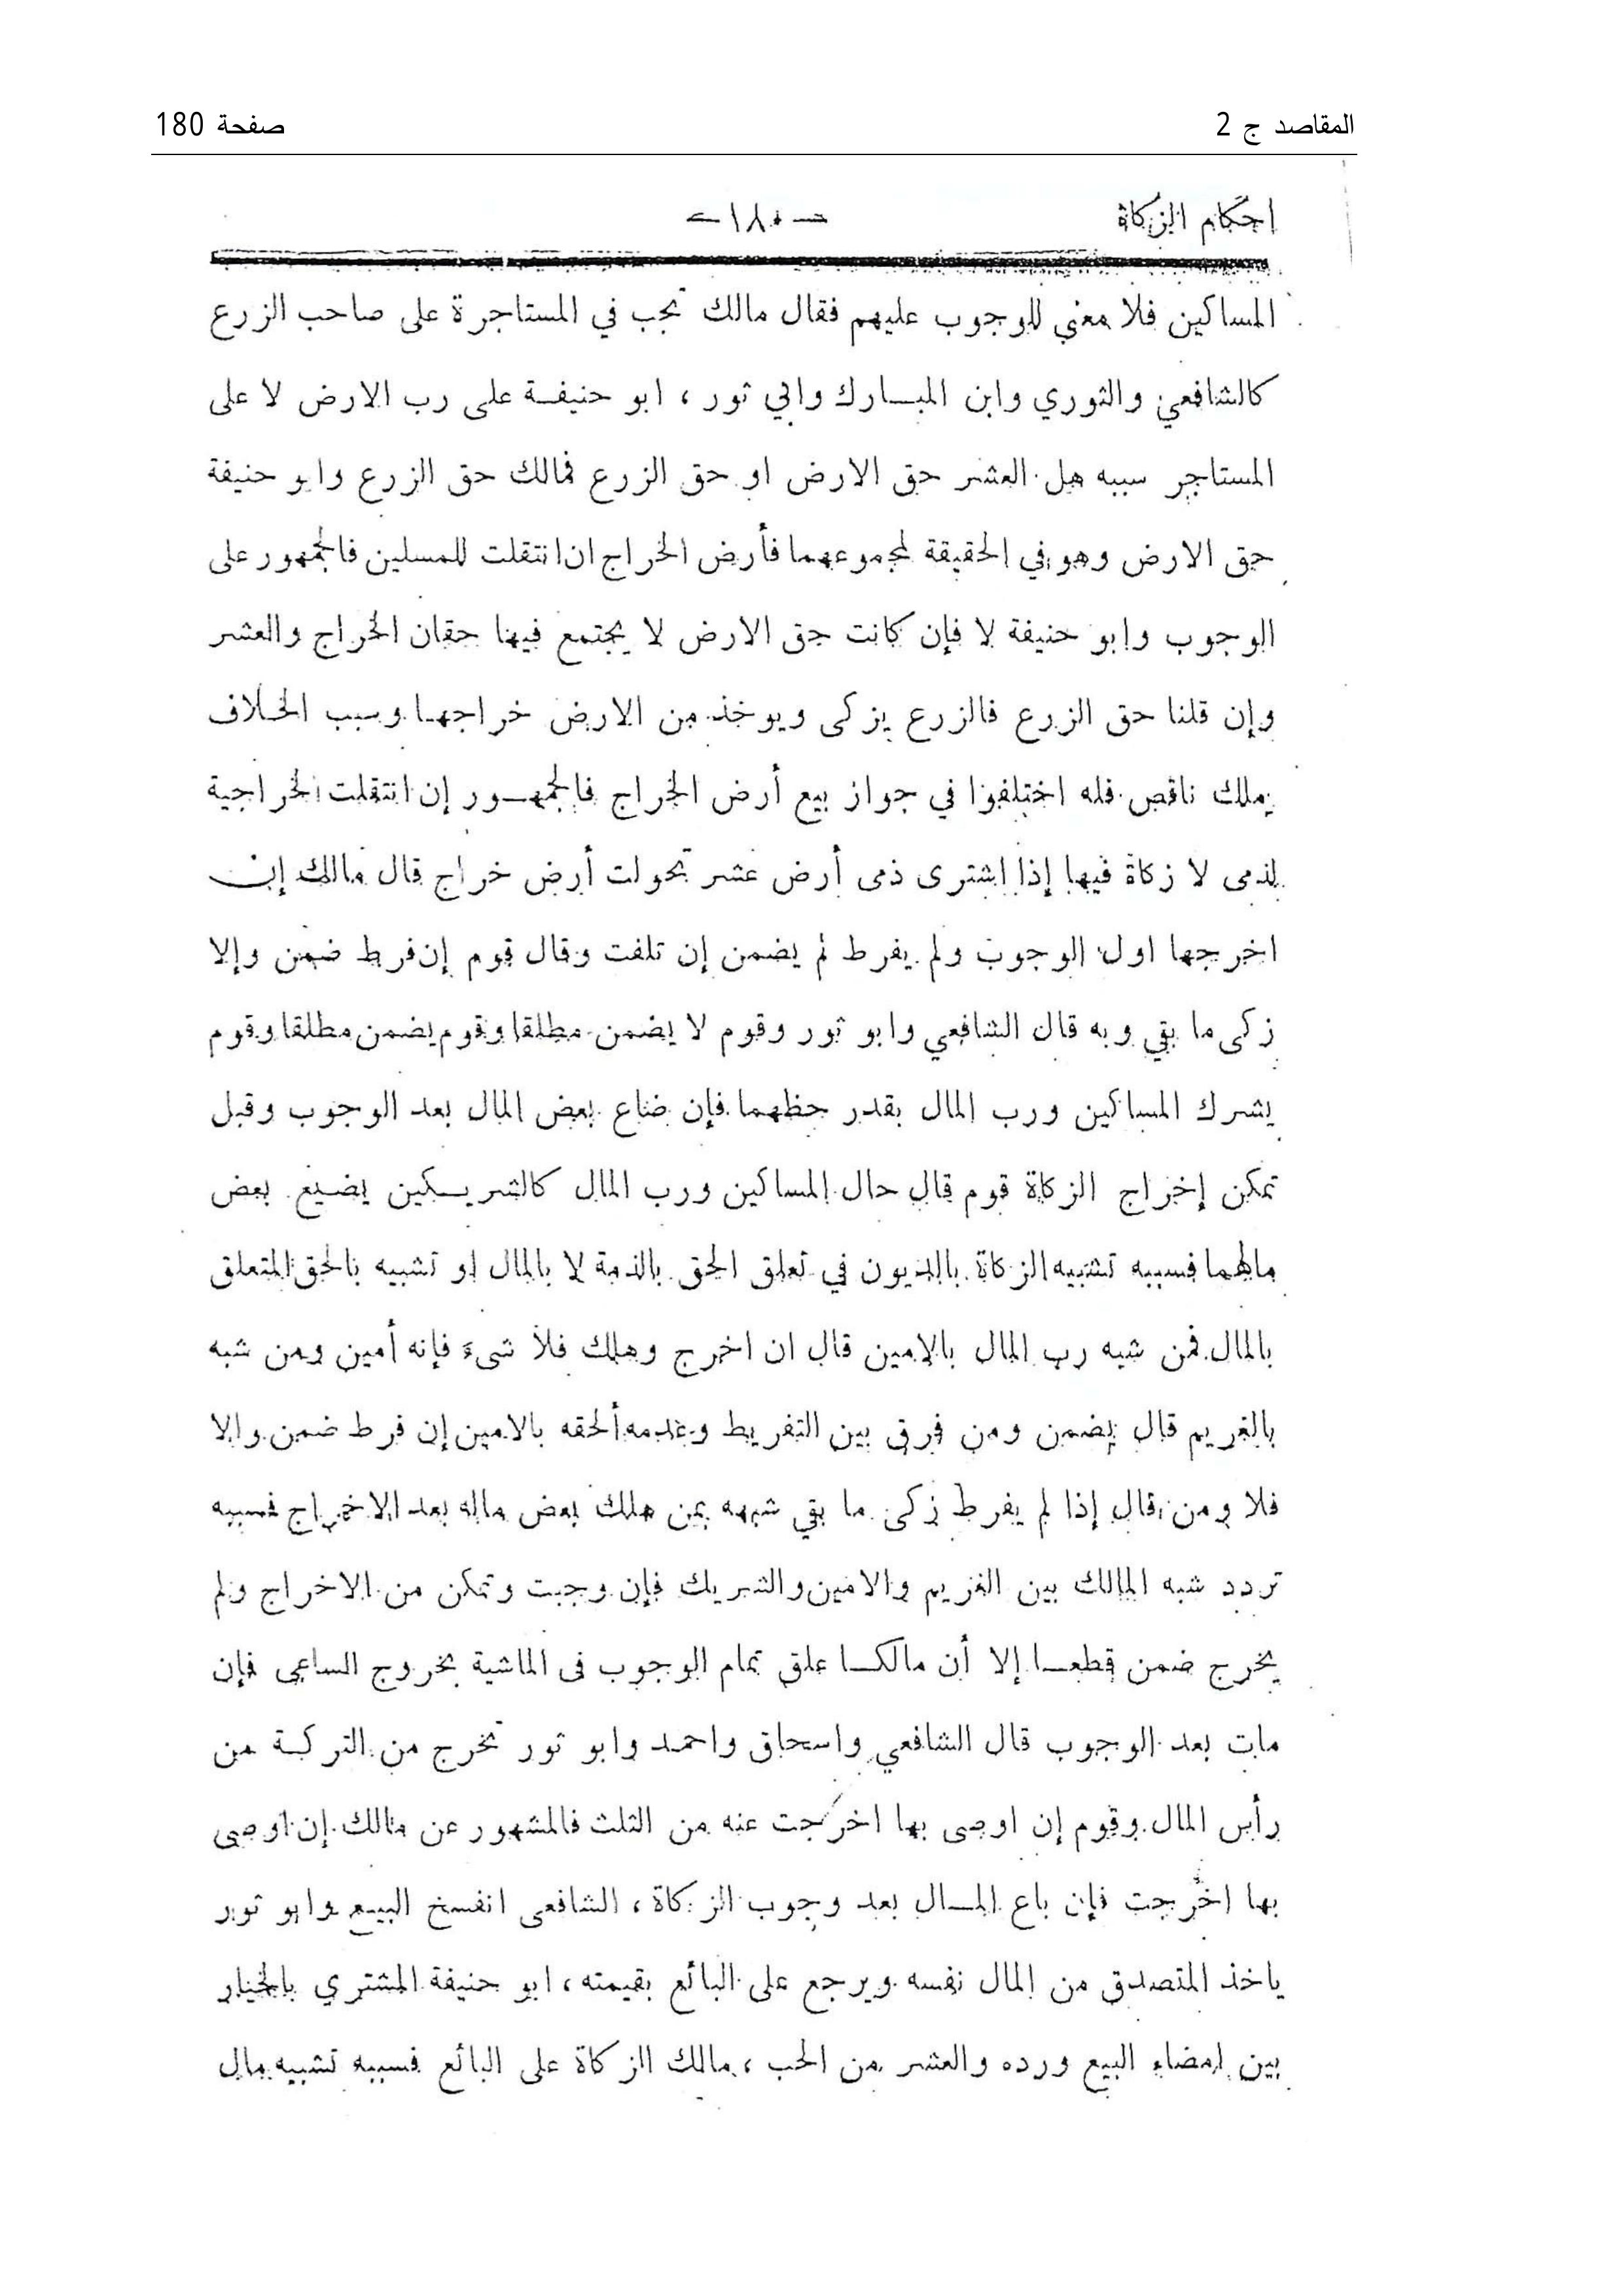 المقاصد ج 2 صفحة 180
احكام الزكاة -١٨٠-
المساكين فلا معنى للوجوب عليهم فقال مالك تجب في المستاجرة على صاحب الزرع
كالشافعي والثوري وابن المبارك وابي ثور ، ابو حنيفة على رب الارض لا على
المستاجر سببه هل العشر حق الارض او حق الزرع فمالك حق الزرع وابو حنيفة
حق الارض وهو في الحقيقة لمجموعهما فأرض الخراج ان انتقلت للمسلين فالجمهور على
الوجوب وابو حنيفة لا فإن كانت حق الارض لا يجتمع فيها حقان الخراج والعشر
وإن قلنا حق الزرع فالزرع يزكى ويوخذ من الارض خراجها وسبب الخلاف
بملك ناقص فله اختلفوا في جواز بيع أرض الخراج فالجمهور إن انتقلت الخراجية
لذمى لا زكاة فيها إذا اشترى ذمى أرض عشر تحولت أرض خراج قال مالك إن
اخرجها اول الوجوب ولم يفرط لم يضمن إن تلفت وقال قوم إن فرط ضمن وإلا
زكى ما بقي وبه قال الشافعي وابو ثور وقوم لا يضمن مطلقا وقوم يضمن مطلقا وقوم
يشرك المساكين ورب المال بقدر حظهما فإن ضاع بعض المال بعد الوجوب وقبل
تمكن إخراج الزكاة قوم قال حال المساكين ورب المال كالشريكين يضيع بعض
مالهما فسببه تشبيه الزكاة بالديون في تعلق الحق بالذمة لا بالمال او تشبيه بالحق المتعلق
بالمال فمن شبه رب المال بالامين قال ان اخرج وهلك فلا شىء فإنه أمين ومن شبه
بالغريم قال يضمن ومن فرق بين التفريط وعدمه ألحقه بالامين إن فرط ضمن والا
فلا ومن قال إذا لم يفرط زكى ما بقي شبهه بمن هلك بعض ماله بعد الاخراج فسببه
تردد شبه المالك بين الغريم والامين والشريك فإن وجبت وتمكن من الاخراج ولم
يخرج ضمن قطعا إلا أن مالكا علق تمام الوجوب فى الماشية بخروج الساعى فإن
مات بعد الوجوب قال الشافعي واسحاق واحمد وابو ثور تخرج من التركة من
رأس المال وقوم إن اوصى بها اخرجت عنه من الثلث فالمشهور عن مالك إن اوصى
بها اخرجت فإن باع المال بعد وجوب الزكاة ، الشافعى انفسخ البيع وابو ثور
ياخذ المتصدق من المال نفسه ويرجع على البائع بقيمته ، ابو حنيفة المشتري بالخيار
بين امضاء البيع ورده والعشر من الحب ، مالك الزكاة على البائع فسببه تشبيه مال